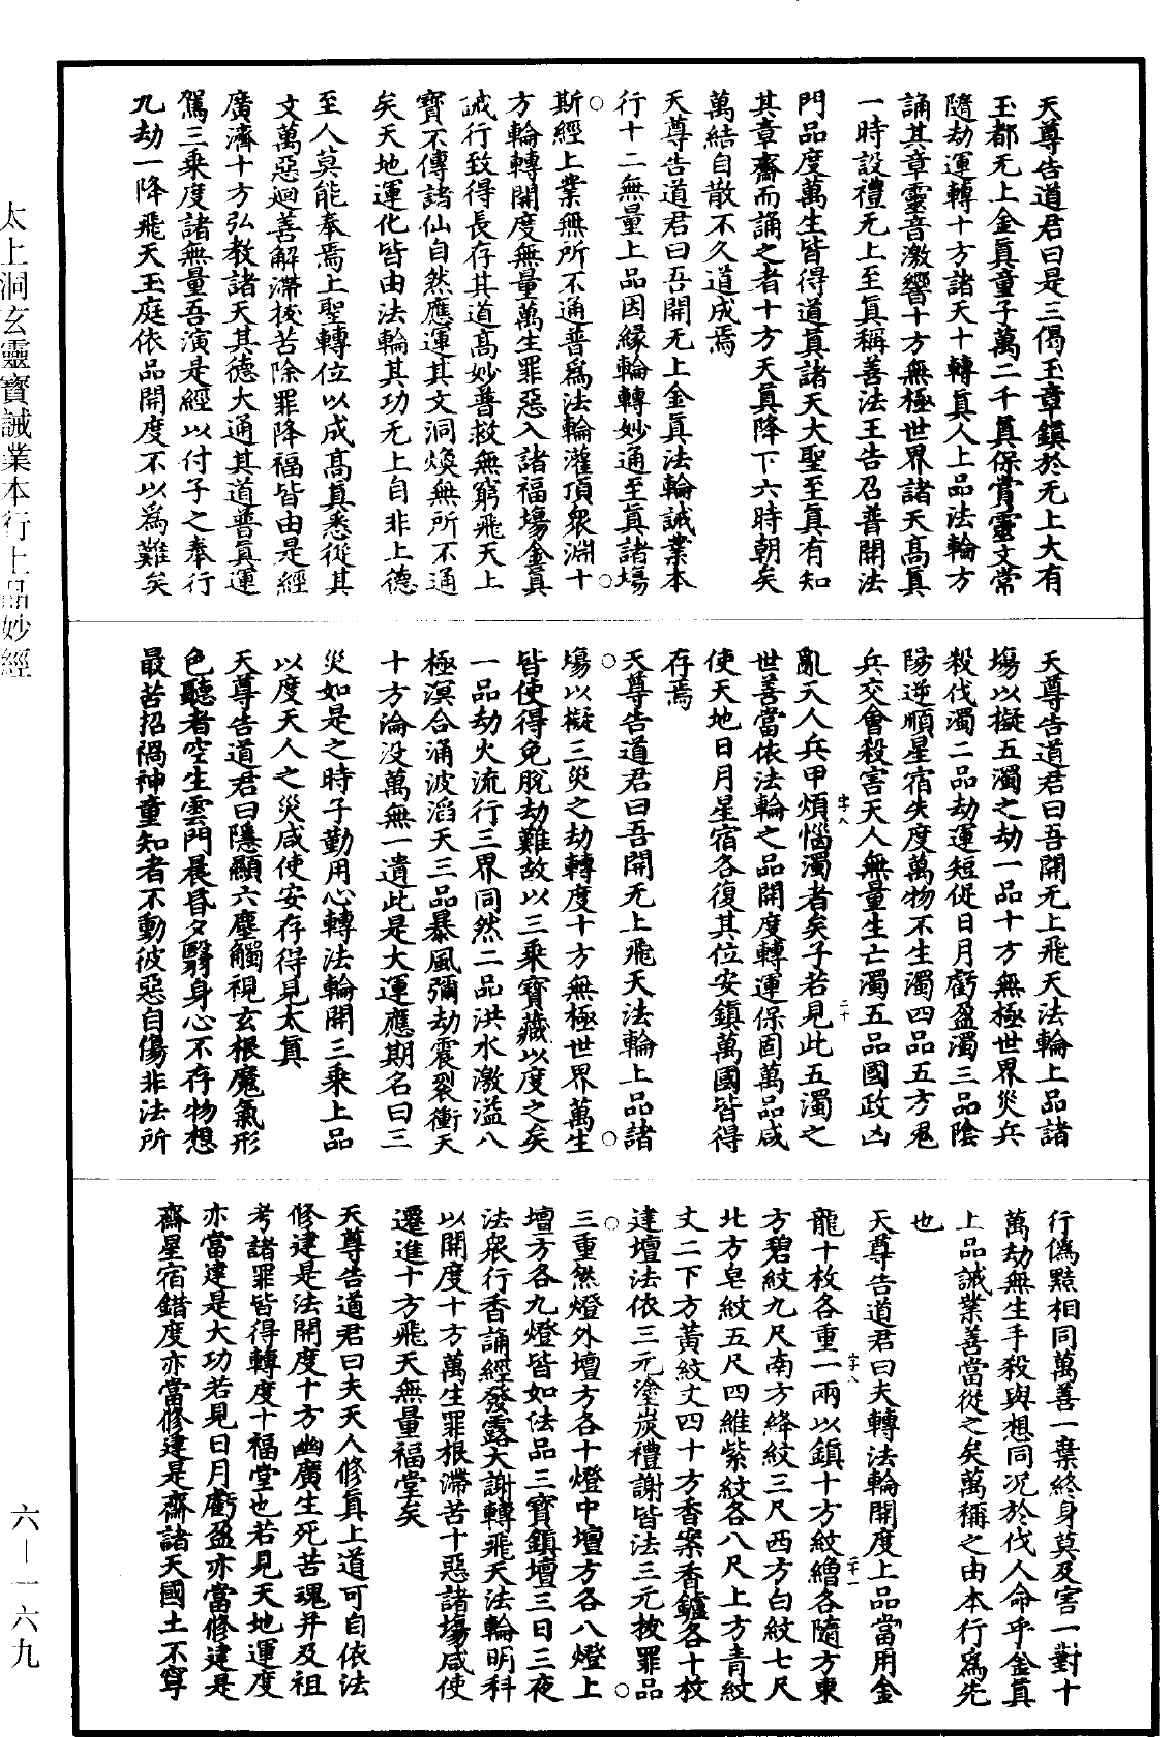 天尊告道君曰是三偈玉章鎮於无上大有
玉都无上金真童子萬二千真保賞靈文常
隨劫運轉十方諸天十轉真人上品法輪方
誦其章靈音激響十方無極世界諸天高真
一時設禮无上至真稱善法王告召普開法
門品度萬生皆得道真諸天大聖至真有知
其章齋而誦之者十方天真降下六時朝矣
萬結自散不久道成焉
天尊告道君曰吾開无上金真法輪誡業本
行十二無量上品因緣輪轉妙通至真諸場
斯經上業無所不通普為法輪灌頂眾淵十
方輪轉開度無量萬生罪惡入諸福場金真
誡行致得長存其道高妙普救無窮飛天上
寶不傳諸仙自然應運其文洞煥無所不通
矣天地運化皆由法輪其功无上自非上德
至人莫能奉焉上聖轉位以成高真悉從其
文萬惡迴善解滯拔苦除罪降福皆由是經
廣濟十方弘教諸天其德大通其道普真運
駕三乘度諸無量吾演是經以付子之奉行
九劫一降飛天玉庭依品開度不以為難矣
天尊告道君曰吾開无上飛天法輪上品諸
場以擬五濁之劫一品十方無極世界災兵
殺伐濁二品劫運短促日月虧盈濁三品陰
陽逆順星宿失度萬物不生濁四品五方鬼
兵交會殺害天人無量生亡濁五品國政凶
亂天人兵甲煩惱濁者矣子若見此五濁之
世善當依法輪之品開度轉運保固萬品咸
使天地日月星宿各復其位安鎮萬國皆得
存焉
天尊告道君曰吾開无上飛天法輪上品諸
場以擬三災之劫轉度十方無極世界萬生
皆使得免脫劫難故以三乘寶藏以度之矣
一品劫火流行三界同然二品洪水激溢八
極溟合涌波滔天三品暴風彌劫震裂衝天
十方淪没萬無一遺此是大運應期名曰三
災如是之時子勤用心轉法輪開三乘上品
以度天人之災咸使安存得見太真
天尊告道君曰隱顯六塵觸視玄根魔氣形
色聽者空生雲門晨昏夕翳身心不存物想
最苦招禍神童知者不動彼惡自傷非法所
行偽黠相同萬善一棄終身莫及害一對十
萬劫無生手殺與想同況於伐人命乎金真
上品誡業善當從之矣萬稱之由本行為先
也
天尊告道君曰夫轉法輪開度上品當用金
龍十枚各重一兩以鎮十方紋繒各隨方東
方碧紋九尺南方絳紋三尺西方白紋七尺
北方皂紋五尺四維紫紋各八尺上方青紋
丈二下方黃紋丈四十方香案香鑪各十枚
建壇法依三元塗炭禮謝皆法三元拔罪品
三重然燈外壇方各十燈中壇方各八燈上
壇方各九燈皆如法品三寶鎮壇三日三夜
法眾行香誦經發露大謝轉飛天法輪明科
以開度十方萬生罪根滯苦十惡諸場咸使
遷進十方飛天無量福堂矣
天尊告道君曰夫天人修真上道可自依法
修建是法開度十方幽廣生死苦魂并及祖
考諸罪皆得轉度十福堂也若見天地運度
亦當建是大功若見日月虧盈亦當修建是
齋星宿錯度亦當修建是齋諸天國土不寧
字八
二十
字八
二十一
太上洞玄靈寶誡業本行上品妙經
六—一六九